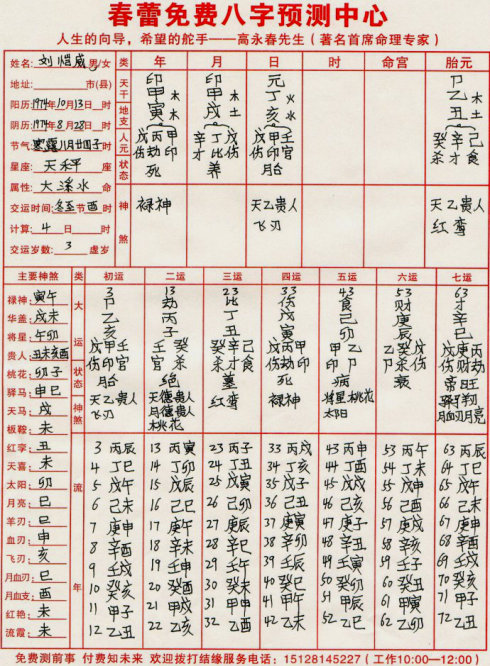 春蕾免费八字预测中心
人生的向导，希望的舵手——高永春先生（著名首席命理专家）
姓名：刘恺威 男/女 类 年 月 日 时 命宫 胎元
地址： 市(县)
阳历：1974年10月13日 时
阴历：1974年8月28日 时
节气：寒露八月廿四子时
星座：天禾平 座
属性：大溪水 命
交运时间：冬至节酉时
计算：4 日 时
交运岁数：3 虚岁
天干 印 印 元 卩
甲木 甲木 丁火 乙木
地支 寅木 戌土 亥水 丑土
人元 戊丙甲 辛丁戊 戊甲壬 癸辛己
伤劫印 才比伤 伤印官 杀才食
状态 死 养 胎
神煞 禄神 天乙贵人 天乙贵人
飞刃 红鸾
主要神煞 类 初运 二运 三运 四运 五运 六运 七运
禄神：寅午
华盖：戌未
将星：午卯
贵人：丑未亥酉
桃花：卯子
驿马：申巳
天马：戌
板鞍：未
红孛：丑
天喜：未
太阳：卯
月亮：巳
羊刃：巳
血刃：申
飞刃：亥
月血刃：巳
月血支：酉
红艳：未
流霞：未
大运 3 13 23 33 43 53 63
卩 劫 比 伤 食 财 才
乙 丙 丁 戊 己 庚 辛
亥 子 丑 寅 卯 辰 巳
戊甲壬 壬癸 癸辛己 戊丙甲 甲乙 乙癸戊 戊庚丙
伤印官 官杀 杀才食 伤劫印 印卩 卩杀伤 伤财劫
状态 胎 绝 墓 死 病 衰 帝旺
神煞 天乙贵人 天德贵人 红鸾 禄神 将星桃花 驿马
飞刃 月德贵人 太阳 月血刃月亮
桃花
流年
3 丙辰 13 丙寅 23 丙子 33 丙戌 43 丙申 53 丙午 63 丙辰
4 丁巳 14 丁卯 24 丁丑 34 丁亥 44 丁酉 54 丁未 64 丁巳
5 戊午 15 戊辰 25 戊寅 35 戊子 45 戊戌 55 戊申 65 戊午
6 己未 16 己巳 26 己卯 36 己丑 46 己亥 56 己酉 66 己未
7 庚申 17 庚午 27 庚辰 37 庚寅 47 庚子 57 庚戌 67 庚申
8 辛酉 18 辛未 28 辛巳 38 辛卯 48 辛丑 58 辛亥 68 辛酉
9 壬戌 19 壬申 29 壬午 39 壬辰 49 壬寅 59 壬子 69 壬戌
10 癸亥 20 癸酉 30 癸未 40 癸巳 50 癸卯 60 癸丑 70 癸亥
11 甲子 21 甲戌 31 甲申 41 甲午 51 甲辰 61 甲寅 71 甲子
12 乙丑 22 乙亥 32 乙酉 42 乙未 52 乙巳 62 乙卯 72 乙丑
免费测前事 付费知未来 欢迎拨打结缘服务电话：15128145227（工作10:00—12:00）